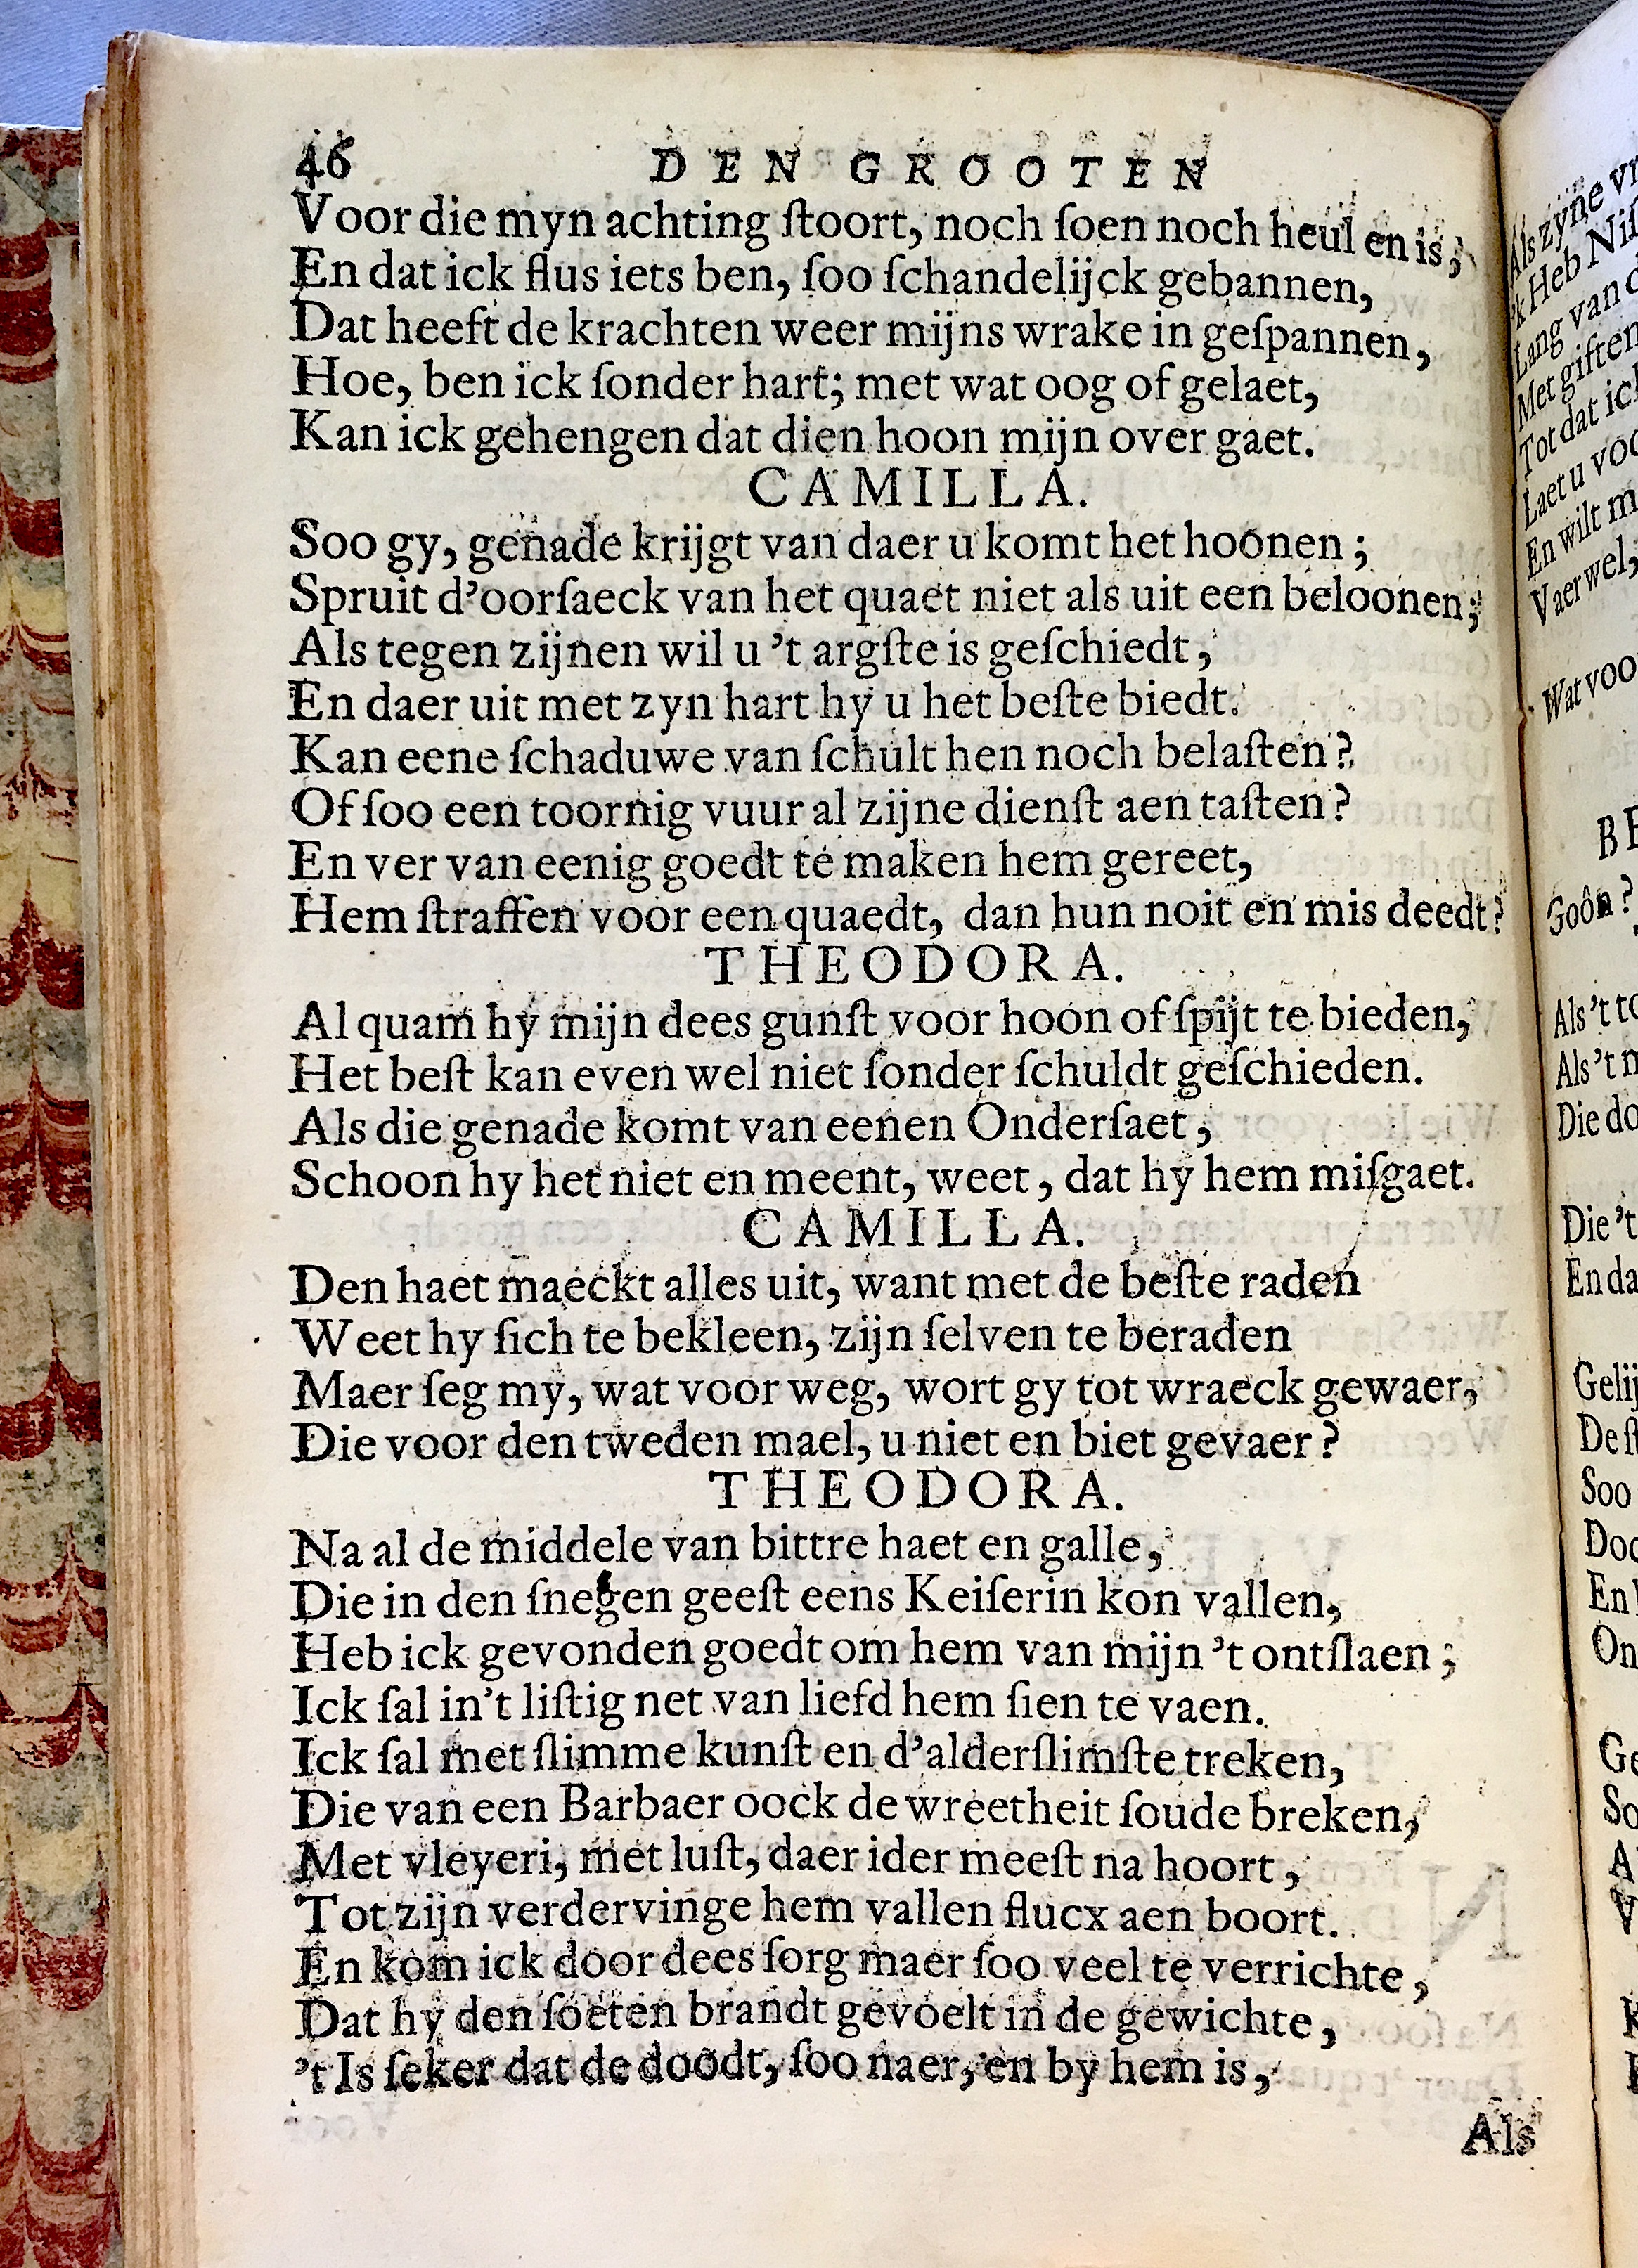 46 DEN GROOTEN
Voor die myn achting ſtoort, noch ſoen noch heul en is;
En dat ick flus iets ben, ſoo ſchandelijck gebannen,
Dat heeft de krachten weer mijns wrake in geſpannen,
Hoe, ben ick ſonder hart; met wat oog of gelaet,
Kan ick gehengen dat dien hoon mijn over gaet.
CAMILLA.
Soo gy, genade krijgt van daer u komt het hoonen;
Spruit d'oorſaeck van het quaet niet als uit een beloonen;
Als tegen zijnen wil u 't argſte is geſchiedt,
En daer uit met zyn hart hy u het beſte biedt.
Kan eene ſchaduwe van ſchult hen noch belaſten?
Of ſoo een toornig vuur al zijne dienſt aen taſten?
En ver van eenig goedt te maken hem gereet,
Hem ſtraffen voor een quaedt, dan hun noit en mis deedt?
THEODORA.
Al quam hy mijn dees gunſt voor hoon of ſpijt te bieden,
Het beſt kan even wel niet ſonder ſchuldt geſchieden.
Als die genade komt van eenen Onderſaet,
Schoon hy het niet en meent, weet, dat hy hem miſgaet.
CAMILLA.
Den haet maeckt alles uit, want met de beſte raden
Weet hy ſich te bekleen, zijn ſelven te beraden
Maer ſeg my, wat voor weg, wort gy tot wraeck gewaer,
Die voor den tweden mael, u niet en biet gevaer?
THEODORA.
Na al de middele van bittre haet en galle,
Die in den ſnegen geeſt eens Keiſerin kon vallen,
Heb ick gevonden goedt om hem van mijn 't ontſlaen;
Ick ſal in't liſtig net van liefd hem ſien te vaen.
Ick ſal met ſlimme kunſt en d'alderſlimſte treken,
Die van een Barbaer oock de wreetheit ſoude breken,
Met vleyeri, met luſt, daer ider meeſt na hoort,
Tot zijn verdervinge hem vallen flucx aen boort.
En kom ick door dees ſorg maer ſoo veel te verrichte,
Dat hy den ſoeten brandt gevoelt in de gewichte,
't Is ſeker dat de doodt, ſoo naer, en by hem is,
Als
Als zyne
'k Heb
Lang van
Met giften
Tot dat
Laet u
En wilt
Vaer wel,
Goôn?
Als 't
Als 't
Die
Die 't
En
Soo